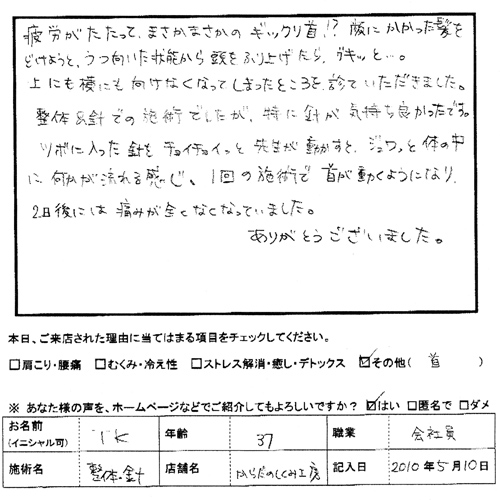 疲労がたたって、まさかまさかのギックリ首!? 顔にかかった髪を
どけようと、うつ向いた状態から頭をふり上げたら、グキッと…。
上にも横にも向けなくなってしまったところを、診ていただきました。
整体&針での施術でしたが、特に針が気持ち良かったです。
ツボに入った針をチョイチョイっと先生が動かすと、ジュワッと体の中
に何かが流れる感じ、1回の施術で首が動くようになり、
2日後には痛みが全くなくなっていました。
ありがとうございました。
本日、ご来店された理由に当てはまる項目をチェックしてください。
□肩こり・腰痛 □むくみ・冷え性 □ストレス解消・癒し・デトックス ☑その他( 首 )
※ あなた様の声を、ホームページなどでご紹介してもよろしいですか? ☑はい □匿名で □ダメ
お名前(イニシャル可) TK 年齢 37 職業 会社員
施術名 整体・針 店舗名 からだのしくみ工房 記入日 2010年5月10日